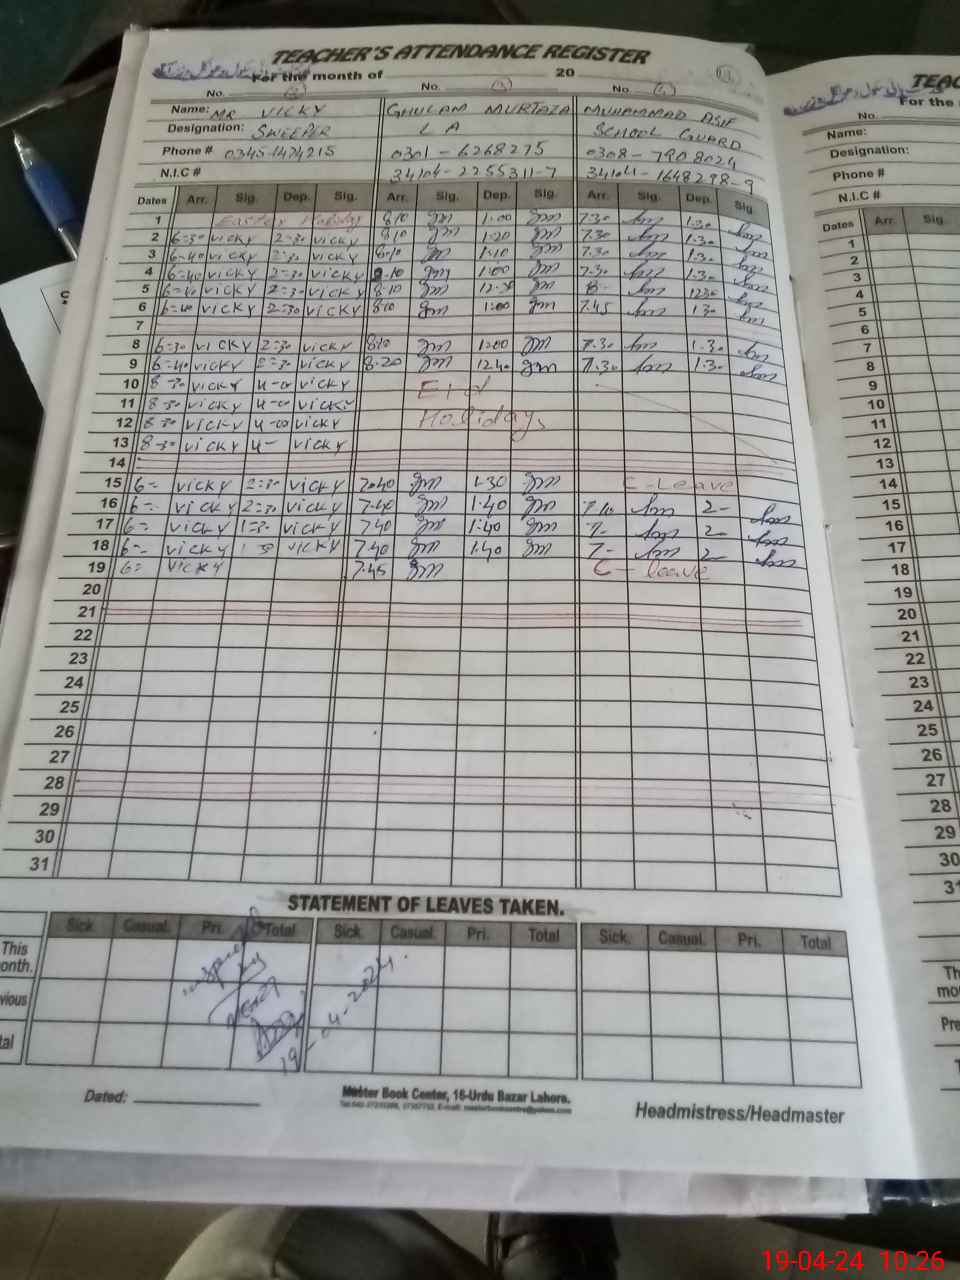 TEACHER'S ATTENDANCE REGISTER
For the month of 20
No. No. No.
Name: MR VICKY GHULAM MURTAZA MUHAMMAD ASIF
Designation: SWEEPER L A SCHOOL GUARD
Phone # 0301 - 6268275 0308 - 7908024
N.I.C # 34104-2255311-7 34104-1648298-9
Dates Arr. Sig. Dep. Sig. Arr. Sig. Dep. Sig. Arr. Sig. Dep. Sig.
1 Easter Holiday 8.10 gm 1.00 gm 7.30 1.30
2 6=30 VICKY 2=30 VICKY 8.10 gm 1.20 gm 7.30 1.30
3 6=40 VICKY 2=30 VICKY 8.10 gm 1.10 gm 7.30 1.30
4 6=40 VICKY 2=30 VICKY 8.10 gm 1.00 gm 7.30 1.30
5 6=40 VICKY 2=30 VICKY 8.10 gm 12.30 gm 8- 1230
6 6=40 VICKY 2=30 VICKY 8.10 gm 1.00 gm 7.45 1.30
7
8 6=30 VICKY 2=30 VICKY 8.10 gm gm 7.30 1.30
9 6=40 VICKY 2=30 VICKY 8.20 gm 12.40 gm 7.30 1.30
10 8=30 VICKY 4-00 VICKY Eid
11 8=30 VICKY 4-00 VICKY
12 8=30 VICKY 4-00 VICKY Holidays
13 8=30 VICKY 4- VICKY
14
15 6= VICKY 2=30 VICKY 7.40 gm 1.30 gm C-Leave
16 6= VICKY 2=30 VICKY 7.40 gm 1.40 gm 7.10 2-
17 6= VICKY 1=30 VICKY 7.40 gm 1.40 gm 7- 2-
18 6= VICKY VICKY 7.40 gm 1.40 gm 7- 2-
19 6= VICKY 7.45 gm C-leave
20
21
22
23
24
25
26
27
28
29
30
31
STATEMENT OF LEAVES TAKEN.
Sick Casual. Pri. Total Sick. Casual. Pri. Total Sick. Casual. Pri. Total
This
onth.
vious
tal
by
19-04-2024.
Dated:
Master Book Center, 16-Urdu Bazar Lahore.
Headmistress/Headmaster
TEAC
For the
No.
Name:
Designation:
Phone #
N.I.C #
Dates Arr. Sig.
1
2
3
4
5
6
7
8
9
10
11
12
13
14
15
16
17
18
19
20
21
22
23
24
25
26
27
28
29
30
31
Th
mo
Pre
T
19-04-24 10:26